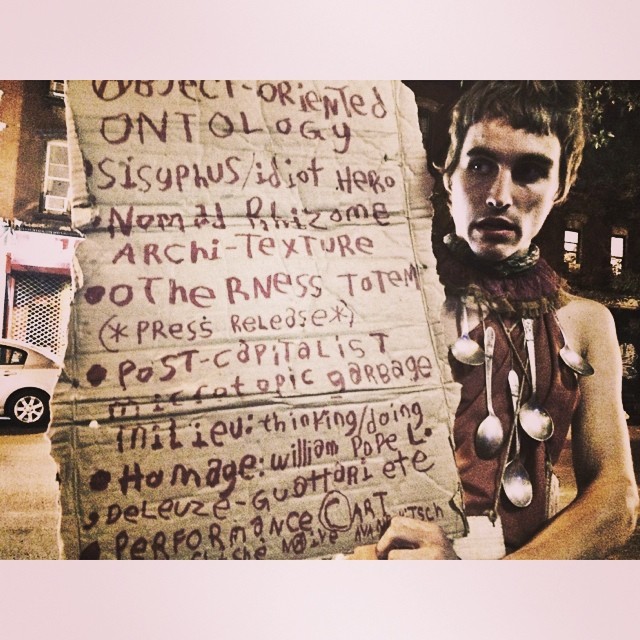 OBJECT-ORIENTED
ONTOLOGY
SISYPHUS/idiot HERO
Nomad Rhizome
ARCHi-TEXTURE
OTHeRNESS TOTEM
(*PRESS ReLeaSe*)
POST-CaPiTALIST
microtopic garbage
milieu: thinking/doing
Homage: william Pope L.
DeLeuze-GuattaRi ete
PERFORMANCE ©ART